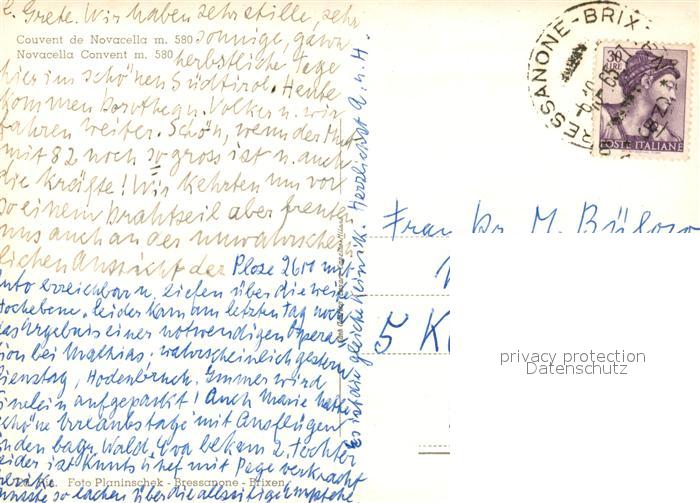 L. Grete. Wir haben sehr stille, sehr
Couvent de Novacella m. 580
Novacella Convent m. 580
sonnige, ganz
herbstliche Tage
hier im schönen Südtirol. Heute
kommen Dorothea u. Volker u. wir
fahren weiter. Schön, wenn der Mut
mit 82 noch so gross ist u. auch
die Kräfte! Wir kehrten uns vor
so einem Drahtseil aber freuten
uns auch an der unwahrschein
lichen Aussicht der Plose 2611 mit
Auto erreichbar u. liefen über die weite
Hochebene, leider kam am letzten Tag noch
das Ergebnis einer notwendigen Opera
tion bei Mathias, wahrscheinlich gestern
Dienstag, Hodenbruch. Immer wird
einem aufgepackt! Auch Marie hatte
schöne Urlaubstage mit Ausflügen
in den bayr. Wald. Eva bekam 2. Tochter
leider ist Kunts Chef mit Page verkracht
Foto Planinschek - Bressanone - Brixen
musste so lachen über die
Es ist die gleiche Klinik. Herzlichst A. u. H.
BRESSANONE - BRIX
30
LIRE
POSTE ITALIANE
Frau Dr. M. Bülow
5 K
privacy protection
Datenschutz